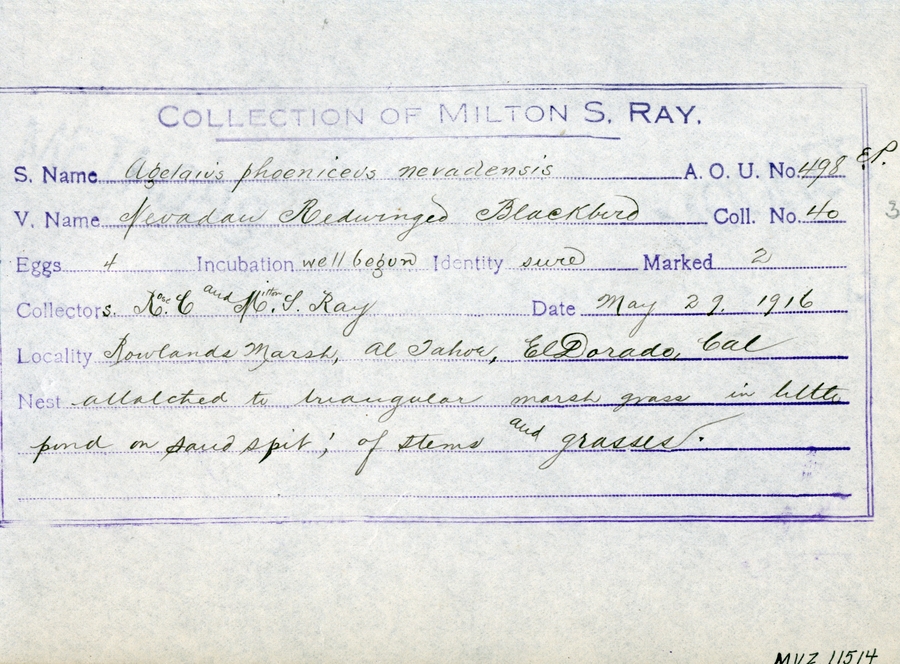 COLLECTION OF MILTON S. RAY.
S. Name Agelaius phoeniceus nevadensis A. O. U. No. 498 E.P.
V. Name Nevadan Redwinged Blackbird Coll. No. 40 3
Eggs 4 Incubation well begun Identity sure Marked 2
Collectors. R. C and Milton S. Ray Date May 29. 1916
Locality Rowlands Marsh, Al Tahoe, El Dorado, Cal
Nest attatched to triangular marsh grass in little
pond on sand spit; of stems and grasses.
MVZ 11514